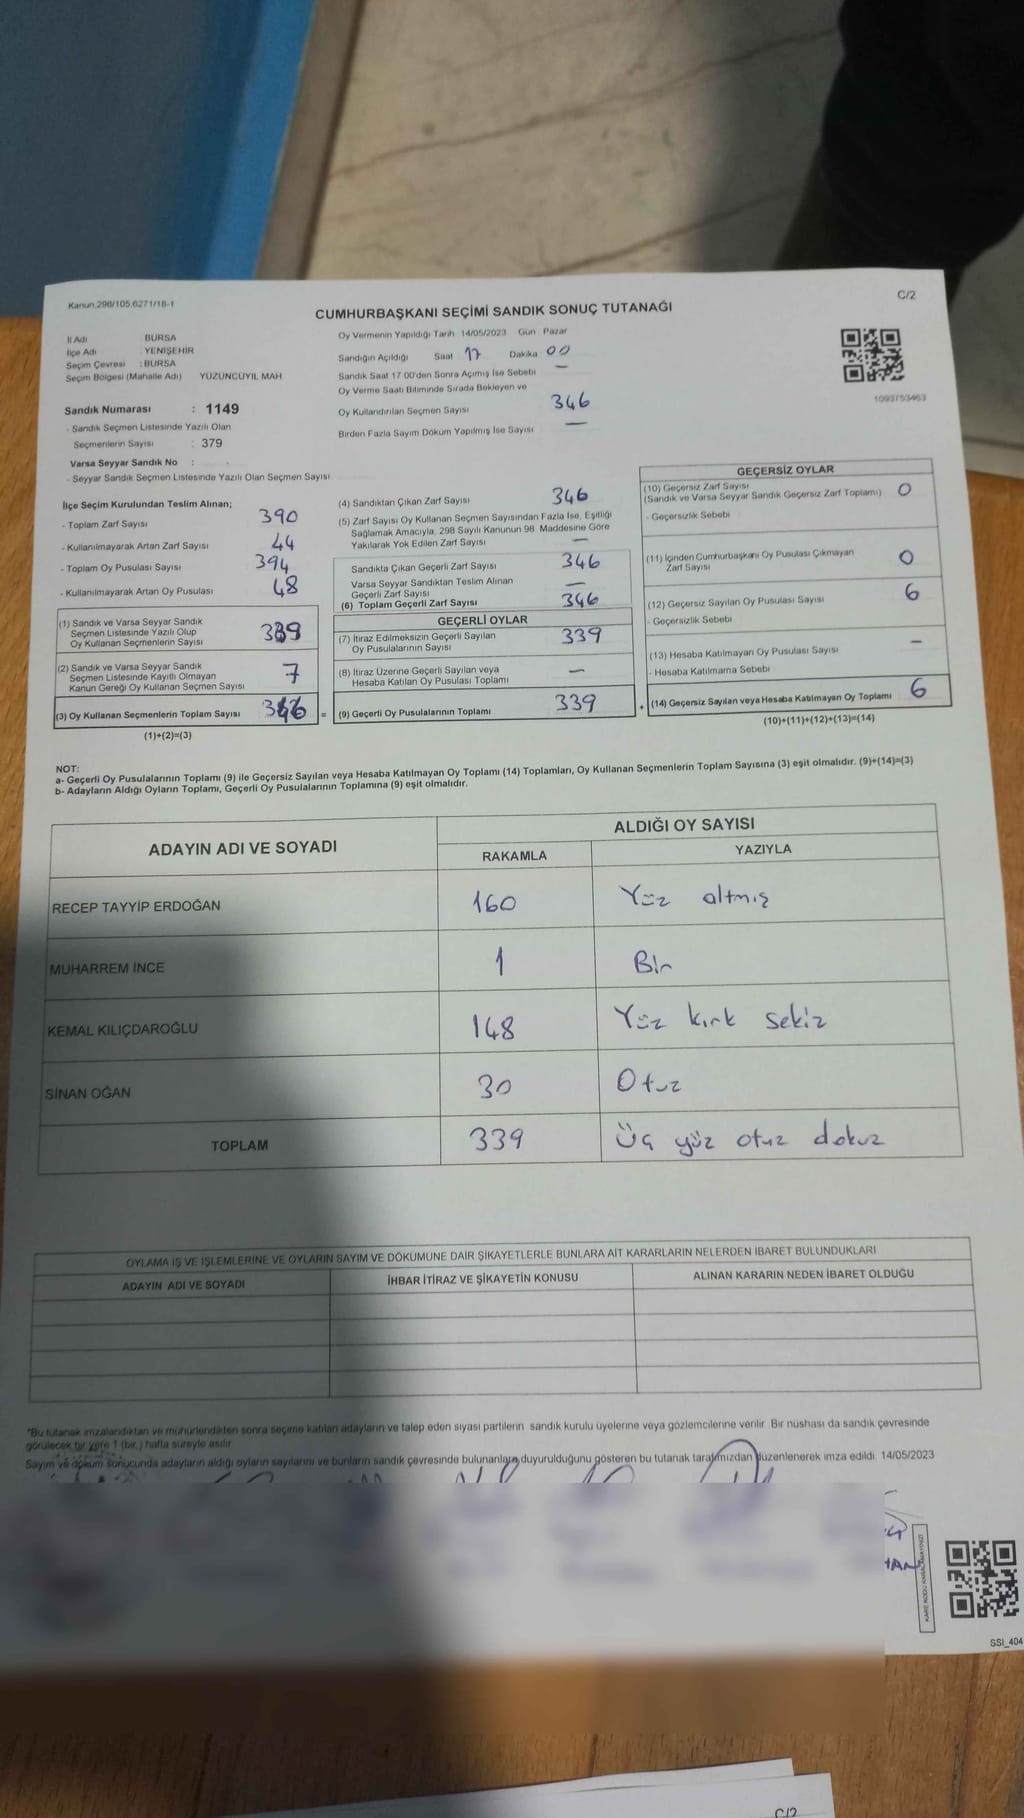 Kanun:298/105.6271/18-1
C/2
CUMHURBAŞKANI SEÇİMİ SANDIK SONUÇ TUTANAĞI
İl Adı BURSA
İlçe Adı : YENİŞEHİR
Seçim Çevresi : BURSA
Seçim Bölgesi (Mahalle Adı) YÜZÜNCÜYIL MAH.
Sandık Numarası : 1149
- Sandık Seçmen Listesinde Yazılı Olan
Seçmenlerin Sayısı : 379
Varsa Seyyar Sandık No :
- Seyyar Sandık Seçmen Listesinde Yazılı Olan Seçmen Sayısı
Oy Vermenin Yapıldığı Tarih 14/05/2023 Gün Pazar
Sandığın Açıldığı Saat 17 Dakika 00
Sandık Saat 17 00'den Sonra Açımış İse Sebebi —
Oy Verme Saati Bitiminde Sırada Bekleyen ve
Oy Kullandırılan Seçmen Sayısı 346
Birden Fazla Sayım Döküm Yapılmış İse Sayısı —
1093753463
İlçe Seçim Kurulundan Teslim Alınan;
- Toplam Zarf Sayısı 390
- Kullanılmayarak Artan Zarf Sayısı 44
- Toplam Oy Pusulası Sayısı 394
- Kullanılmayarak Artan Oy Pusulası 48
(1) Sandık ve Varsa Seyyar Sandık
Seçmen Listesinde Yazılı Olup
Oy Kullanan Seçmenlerin Sayısı 339
(2) Sandık ve Varsa Seyyar Sandık
Seçmen Listesinde Kayıtlı Olmayan
Kanun Gereği Oy Kullanan Seçmen Sayısı 7
(3) Oy Kullanan Seçmenlerin Toplam Sayısı 346 =
(1)+(2)=(3)
(4) Sandıktan Çıkan Zarf Sayısı 346
(5) Zarf Sayısı Oy Kullanan Seçmen Sayısından Fazla İse, Eşitliği
Sağlamak Amacıyla, 298 Sayılı Kanunun 98. Maddesine Göre
Yakılarak Yok Edilen Zarf Sayısı —
Sandıkta Çıkan Geçerli Zarf Sayısı 346
Varsa Seyyar Sandıktan Teslim Alınan
Geçerli Zarf Sayısı —
(6) Toplam Geçerli Zarf Sayısı 346
GEÇERLİ OYLAR
(7) İtiraz Edilmeksizin Geçerli Sayılan
Oy Pusulalarının Sayısı 339
(8) İtiraz Üzerine Geçerli Sayılan veya
Hesaba Katılan Oy Pusulası Toplamı —
(9) Geçerli Oy Pusulalarının Toplamı 339 +
GEÇERSİZ OYLAR
(10) Geçersiz Zarf Sayısı 0
(Sandık ve Varsa Seyyar Sandık Geçersiz Zarf Toplamı)
- Geçersizlik Sebebi
(11) İçinden Cumhurbaşkanı Oy Pusulası Çıkmayan
Zarf Sayısı 0
(12) Geçersiz Sayılan Oy Pusulası Sayısı 6
- Geçersizlik Sebebi
(13) Hesaba Katılmayan Oy Pusulası Sayısı —
- Hesaba Katılmama Sebebi
(14) Geçersiz Sayılan veya Hesaba Katılmayan Oy Toplamı 6
(10)+(11)+(12)+(13)=(14)
NOT:
a- Geçerli Oy Pusulalarının Toplamı (9) ile Geçersiz Sayılan veya Hesaba Katılmayan Oy Toplamı (14) Toplamları, Oy Kullanan Seçmenlerin Toplam Sayısına (3) eşit olmalıdır. (9)+(14)=(3)
b- Adayların Aldığı Oyların Toplamı, Geçerli Oy Pusulalarının Toplamına (9) eşit olmalıdır.
ADAYIN ADI VE SOYADI
ALDIĞI OY SAYISI
RAKAMLA YAZIYLA
RECEP TAYYİP ERDOĞAN 160 Yüz altmış
MUHARREM İNCE 1 Bir
KEMAL KILIÇDAROĞLU 148 Yüz kırk sekiz
SİNAN OĞAN 30 Otuz
TOPLAM 339 Üç yüz otuz dokuz
OYLAMA İŞ VE İŞLEMLERİNE VE OYLARIN SAYIM VE DÖKÜMÜNE DAİR ŞİKAYETLERLE BUNLARA AİT KARARLARIN NELERDEN İBARET BULUNDUKLARI
ADAYIN ADI VE SOYADI İHBAR İTİRAZ VE ŞİKAYETİN KONUSU ALINAN KARARIN NEDEN İBARET OLDUĞU
*Bu tutanak imzalandıktan ve mühürlendikten sonra seçime katılan adayların ve talep eden siyasi partilerin sandık kurulu üyelerine veya gözlemcilerine verilir. Bir nüshası da sandık çevresinde
görülecek bir yere 1 (bir) hafta süreyle asılır.
Sayım ve döküm sonucunda adayların aldığı oyların sayılarını ve bunların sandık çevresinde bulunanlara duyurulduğunu gösteren bu tutanak tarafımızdan düzenlenerek imza edildi. 14/05/2023
SSİ_404
C/2